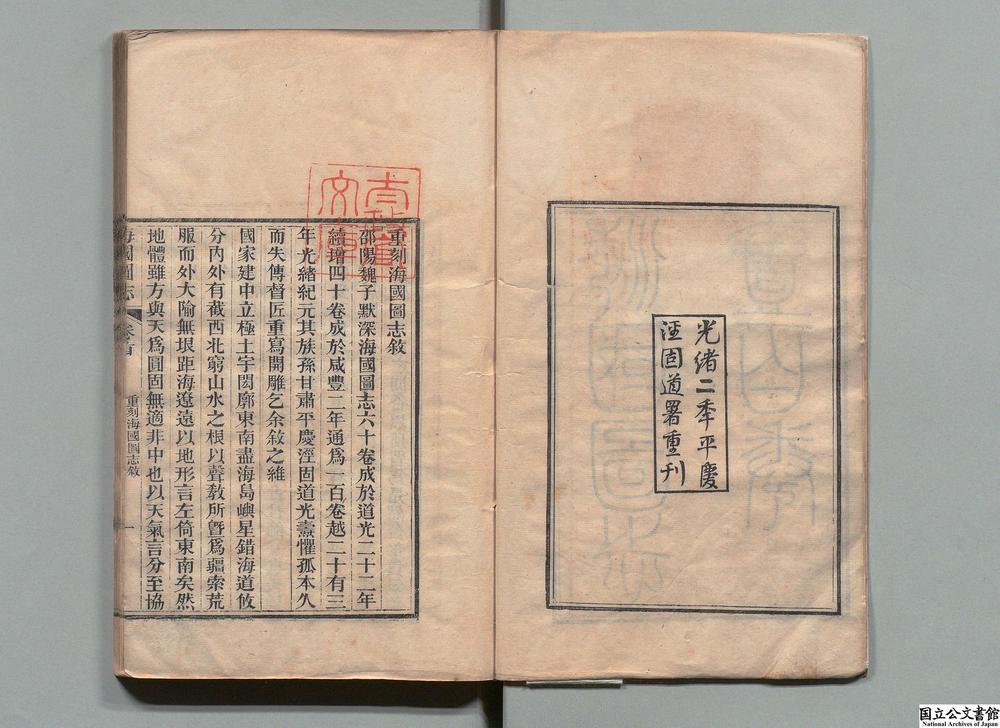 光緒二季平慶
涇固道署重刊
重刻海國圖志敘
邵陽魏子默深海國圖志六十卷成於道光二十二年
續增四十卷成於咸豐二年通爲一百卷越二十有三
年光緒紀元其族孫甘肅平慶涇固道光燾懼孤本久
而失傳督匠重寫開雕乞余敘之維
國家建中立極土宇閎廓東南盡海島嶼星錯海道攸
分內外有截西北窮山水之根以聲教所曁爲疆索荒
服而外大隃無垠距海遼遠以地形言左倚東南矣然
地體雖方與天爲圓固無適非中也以天氣言分至協
海國圖志
卷首
重刻海國圖志敘
一
国立公文書館
National Archives of Japan